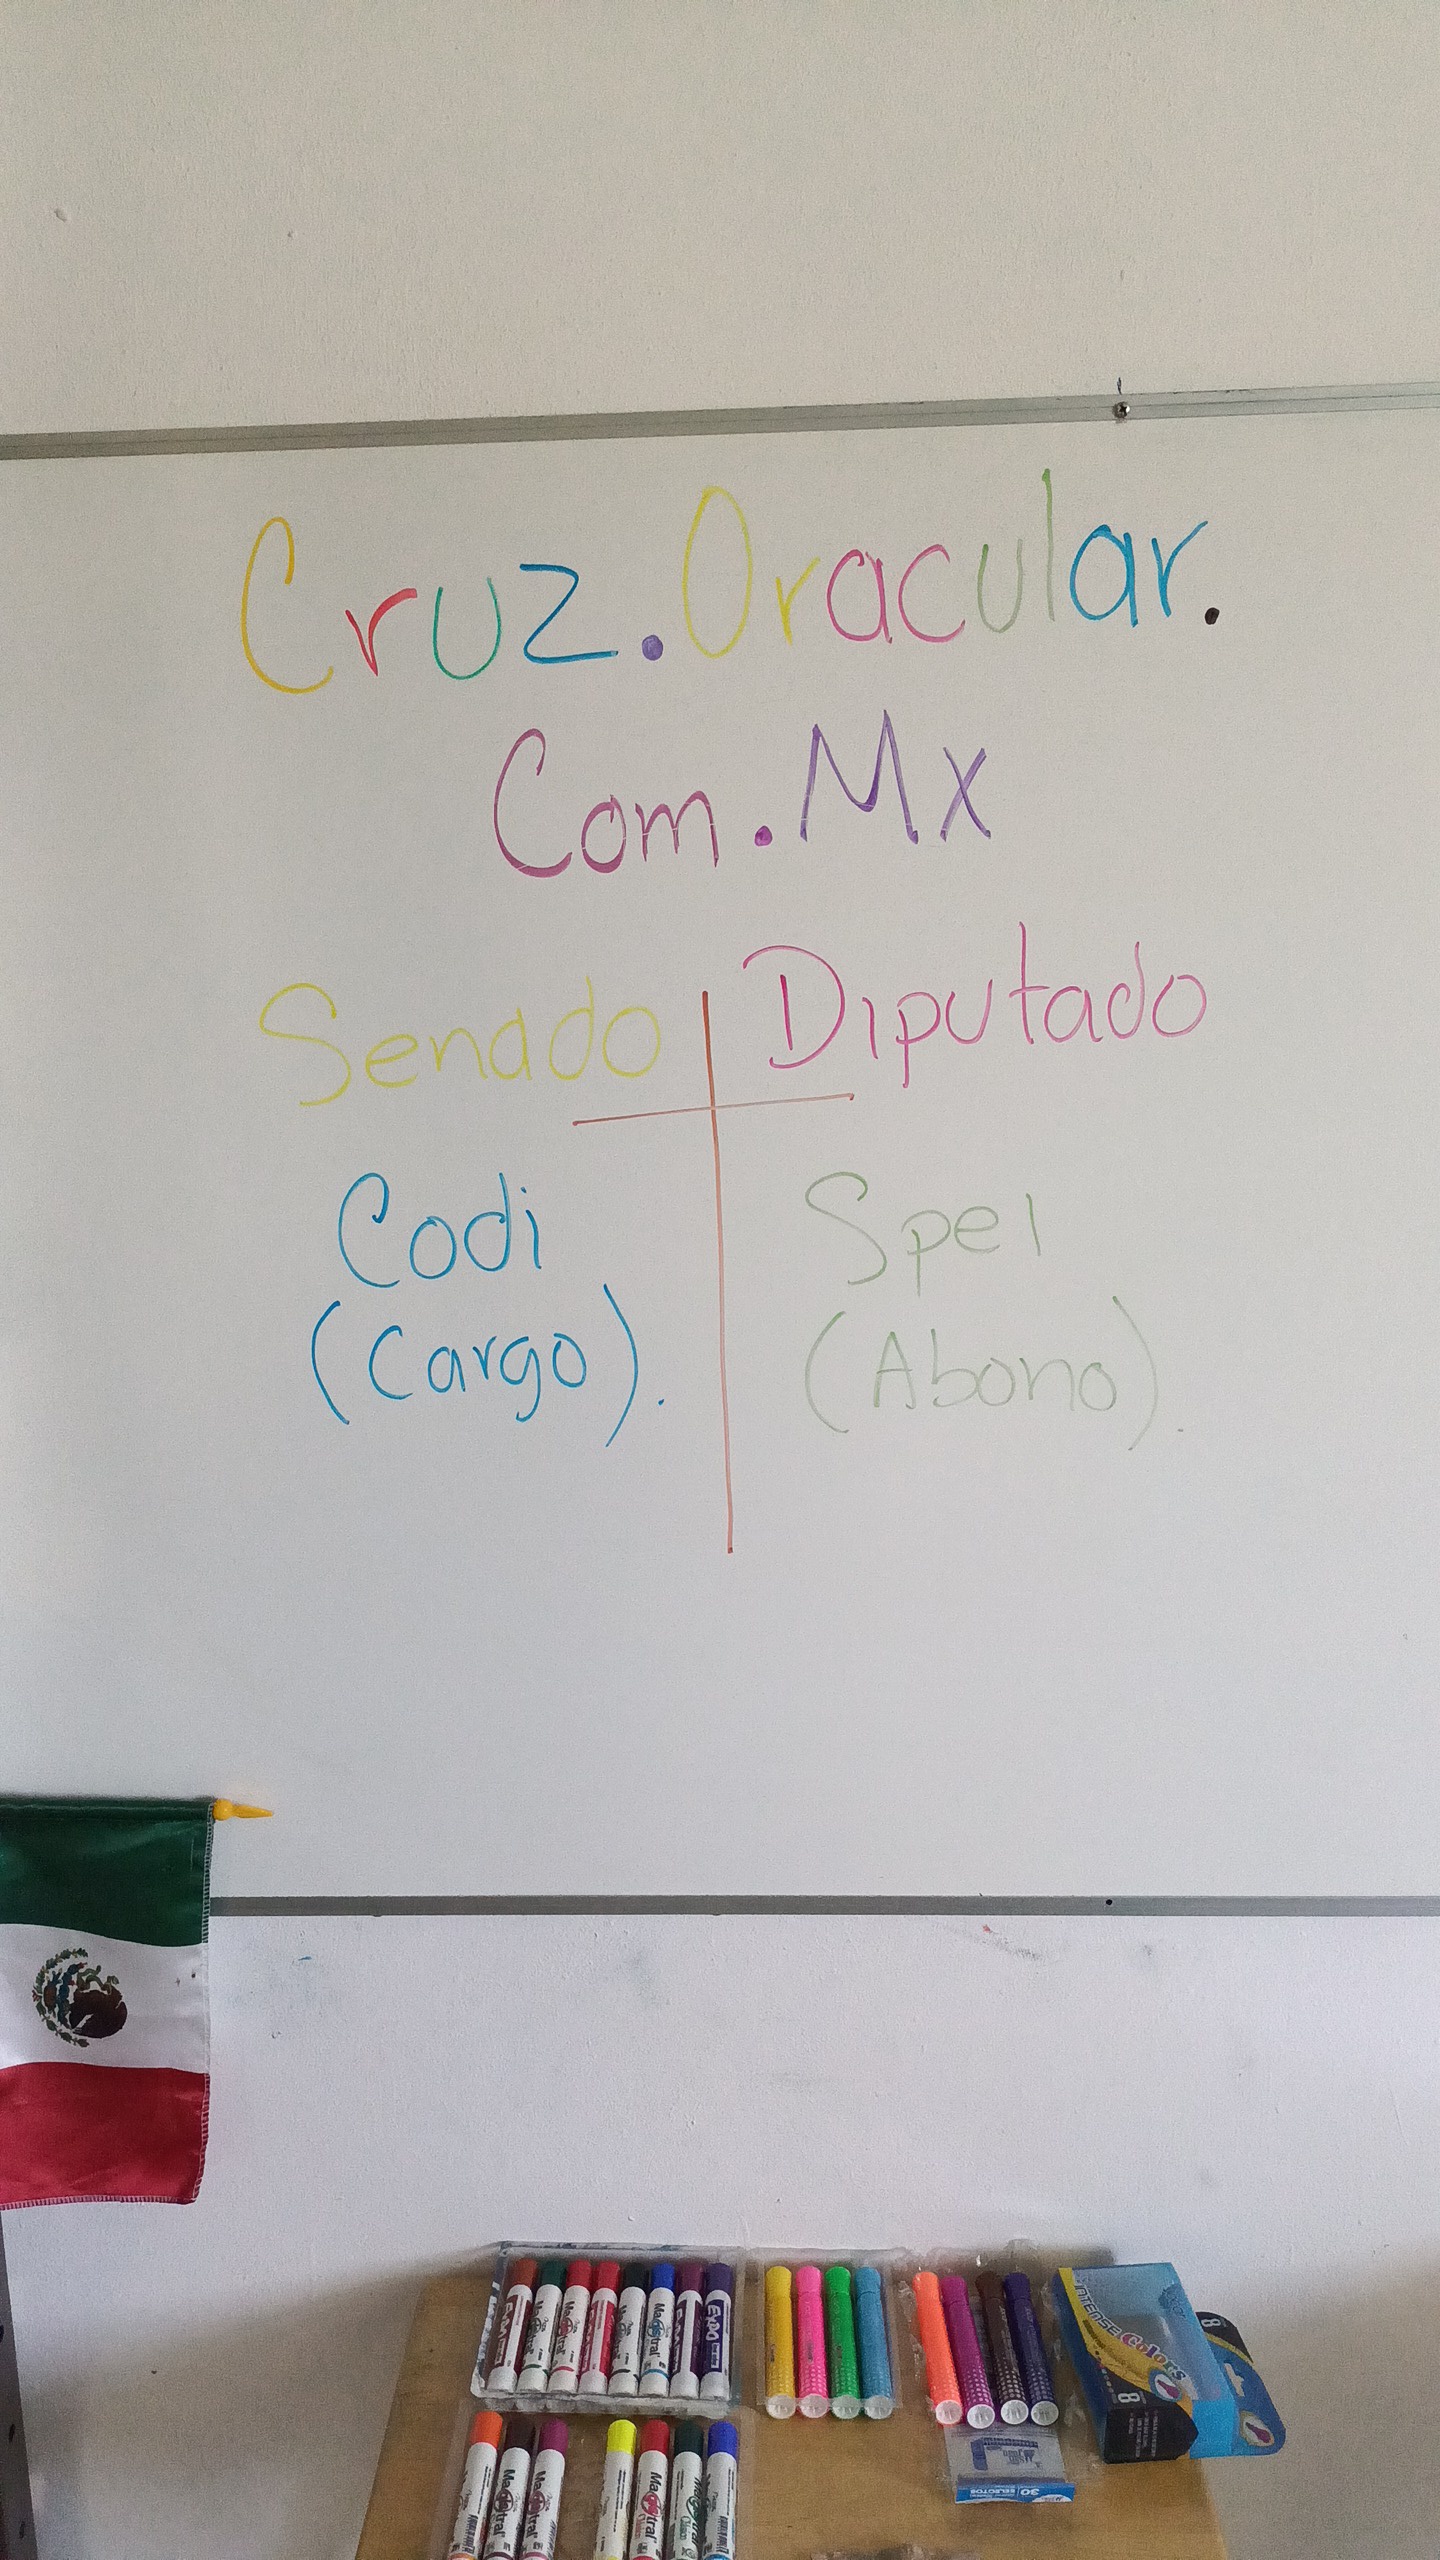 Cruz.Oracular.
Com.Mx
Senado
Diputado
Codi
(Cargo).
Spei
(Abono).
EXPO
Magistral
Magistral
Magistral
Magistral
Magistral
Magistral
INTENSE
Colors
8
8
30